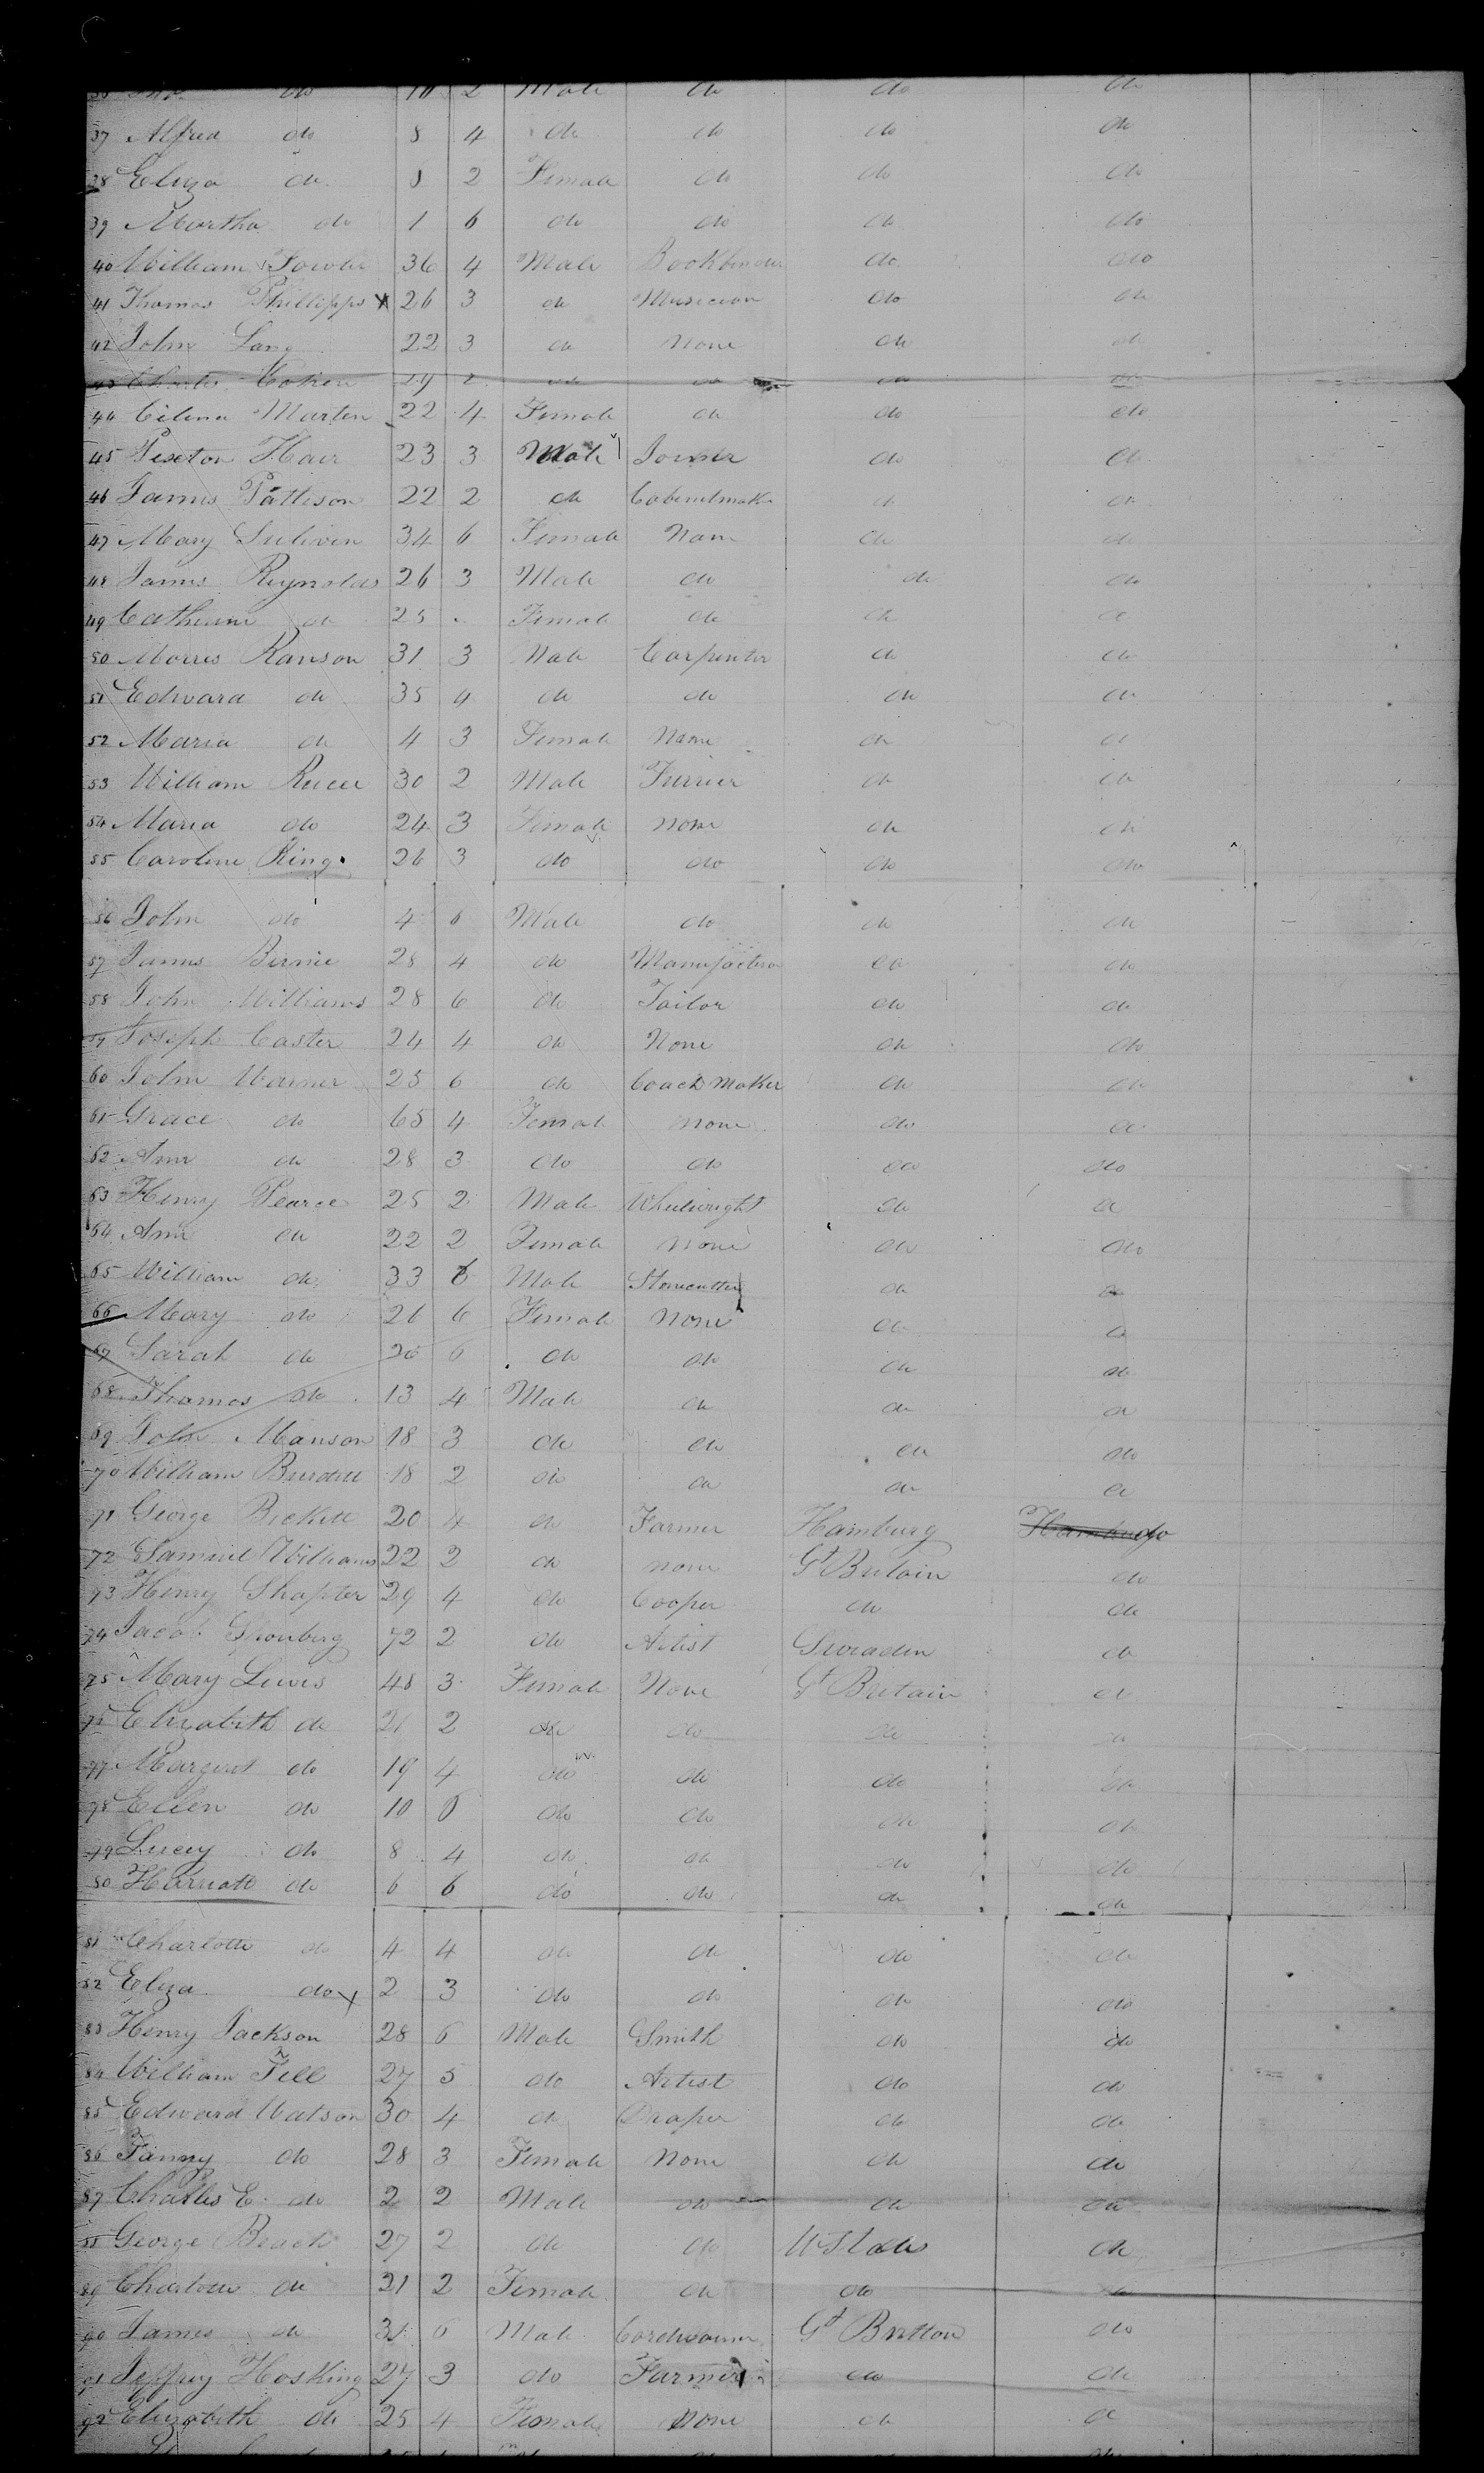 do 10 2 Male do do do
37 Alfred do 8 4 do do do do
38 Eliza do 2 Female do do do
39 Martha do 1 6 do do do do
40 William Fowler 36 4 Male Bookbinder do do
41 Thomas Phillipps x 26 3 do Musician do do
42 John Lang 22 3 do None do do
43 Charles Coken 29 do do do do
44 Cilena Marten 22 4 Female do do do
45 Pexton Hair 23 3 Male Joiner do do
46 James Pattison 22 2 do Cabinetmak do do
47 Mary Suliven 34 6 Female Non do do
48 James Reynolds 26 3 Male do do do
49 Catherine do 25 Female do do do
50 Morris Ranson 31 3 Male Carpenter do do
51 Edward do 35 4 do do do do
52 Maria do 4 3 Female None do do
53 William Rucee 30 2 Male Furrier do do
54 Maria do 24 3 Female None do do
55 Caroline King 26 3 do do do do
56 John do 4 6 Male do do do
57 James Birnie 28 4 do Manufacturer do do
58 John Williams 28 6 do Tailor do do
59 Joseph Caster 24 4 do None do do
60 John Warner 25 6 do Coach Maker do do
61 Grace do 65 4 Female None do do
62 Ann do 28 3 do do do do
63 Henry Pearce 25 2 Male Wheelwright do do
64 Ann do 22 2 Female None do do
65 William do 33 6 Male Stonecutter do do
66 Mary do 26 6 Female None do do
67 Sarah do 26 6 do do do do
68 Thomas do 13 4 Male do do do
69 John Manson 18 3 do do do do
70 William Burdett 18 2 do do do do
71 George Bickett 20 4 do Farmer Hamburg do
72 Samuel Williams 22 2 do None Gt Britain do
73 Henry Shapter 29 4 do Cooper do do
74 Jacob Shonberg 72 2 do Artist Sweaden do
75 Mary Lewis 48 3 Female None Gt Britain do
76 Elizabeth do 21 2 do do do do
77 Margret do 19 4 do do do do
78 Ellen do 10 6 do do do do
79 Lucey do 8 4 do do do do
80 Harriatt do 6 6 do do do do
81 Charlotte do 4 4 do do do do
82 Eliza do x 2 3 do do do do
83 Henry Jackson 28 6 Male Smith do do
84 William Fell 27 5 do Artist do do
85 Edward Watson 30 4 do Draper do do
86 Fanny do 28 3 Female None do do
87 Charles E. do 2 2 Male do do do
88 George Beach 27 2 do do U States do
89 Charlotte do 21 2 Female do do do
90 James do 31 6 Male Cordwainer Gt Britton do
91 Jeffrey Hosking 27 3 do Farmer do do
92 Elizabeth do 25 4 Female None do do